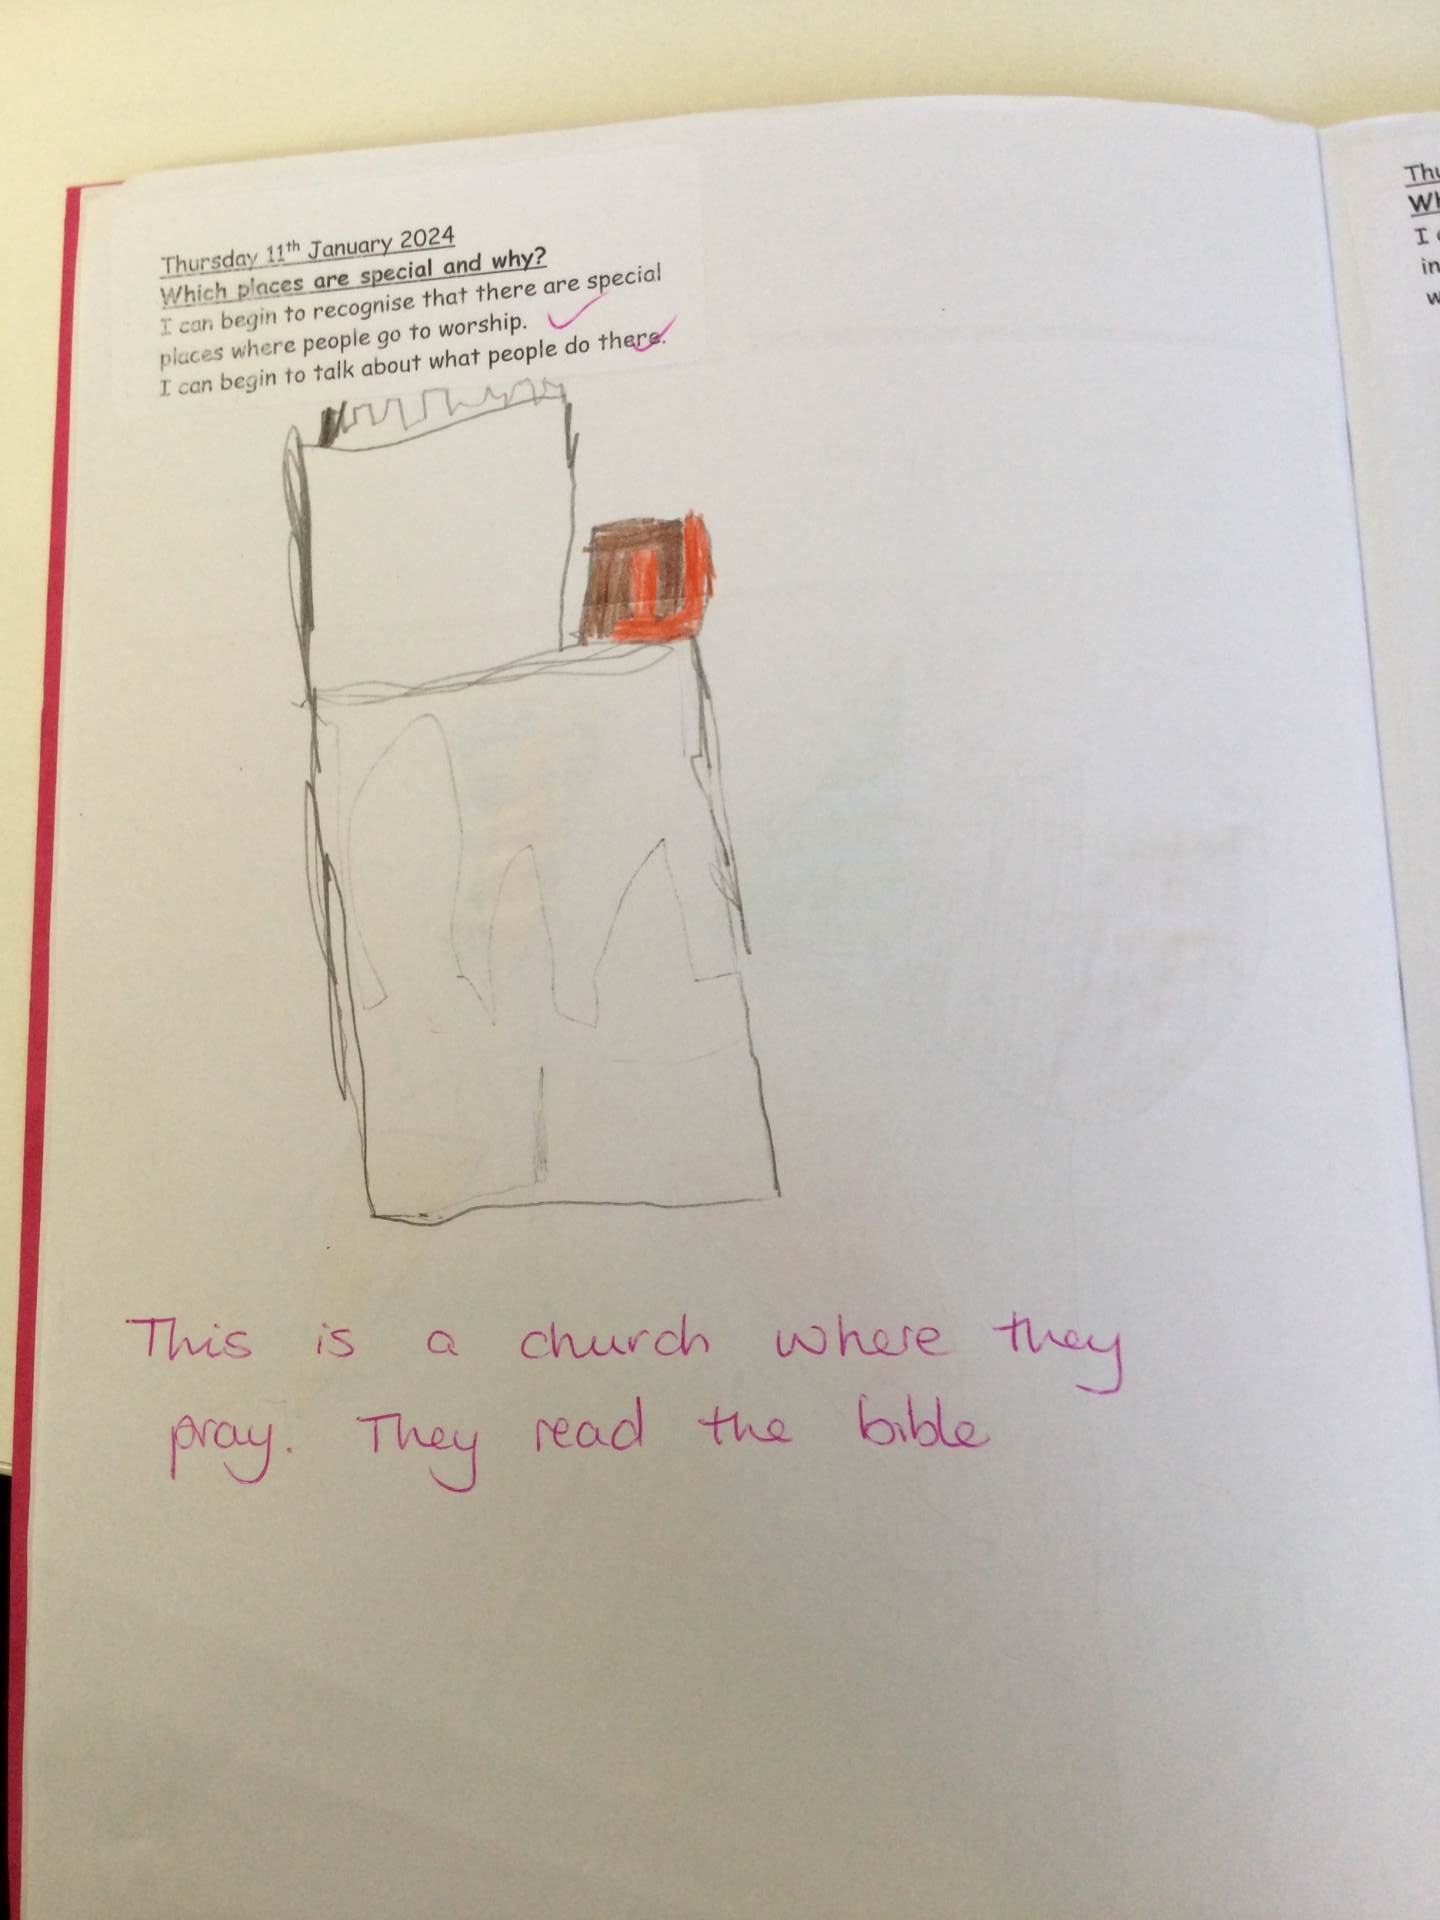 Thursday 11th January 2024
Which places are special and why?
I can begin to recognise that there are special
places where people go to worship.
I can begin to talk about what people do there.
This is a church where they
pray. They read the bible
I
in